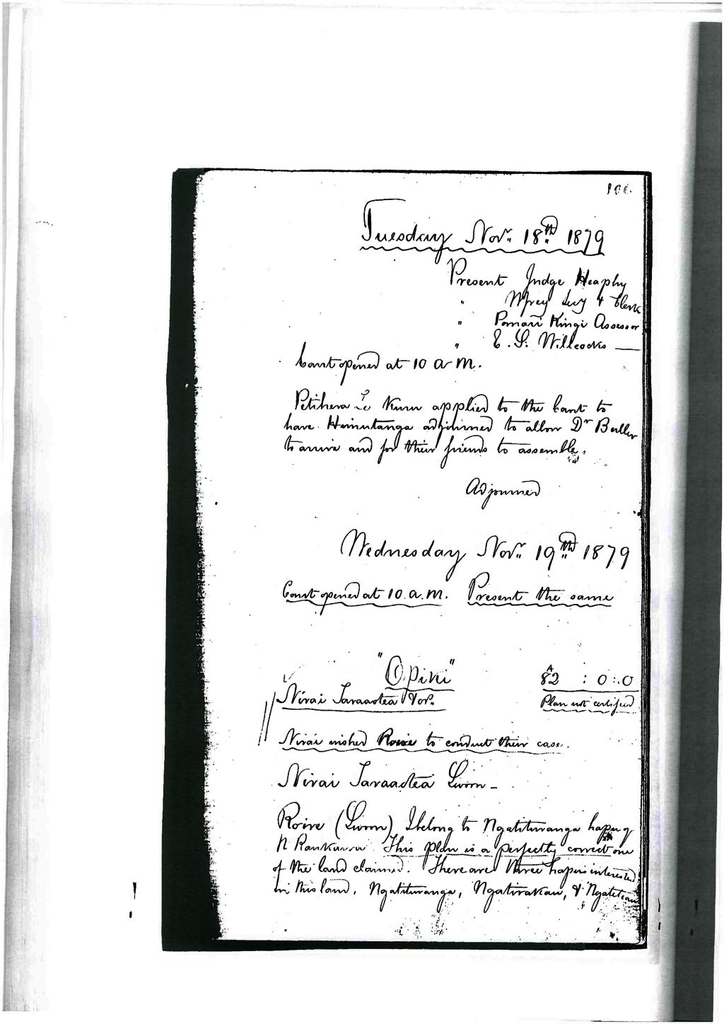 Tuesday Nov. 18th 1879
Present Judge Heaphy
" & Clerk
" Pomare Kingi Assessor
" E. S. Willcocks —
Court opened at 10 a.m.
Petihera Te Kuru applied to the Court to
have Himutanga adjourned to allow Dr Buller
to arrive and for their friends to assemble.
Adjourned
Wednesday Nov. 19th 1879
Court opened at 10. a.m. Present the same
"Opiki" A 82 : 0 : 0
Nirai Taraaotea & or. Plan not certified
Nirai wished Roire to conduct their case.
Nirai Taraaotea Sworn –
Roire (Sworn) I belong to Ngatituranga hapu of
N Raukawa This plan is a perfectly correct one
of the land claimed. There are three hapus interested
in this land, Ngatituranga, Ngatirakau, &